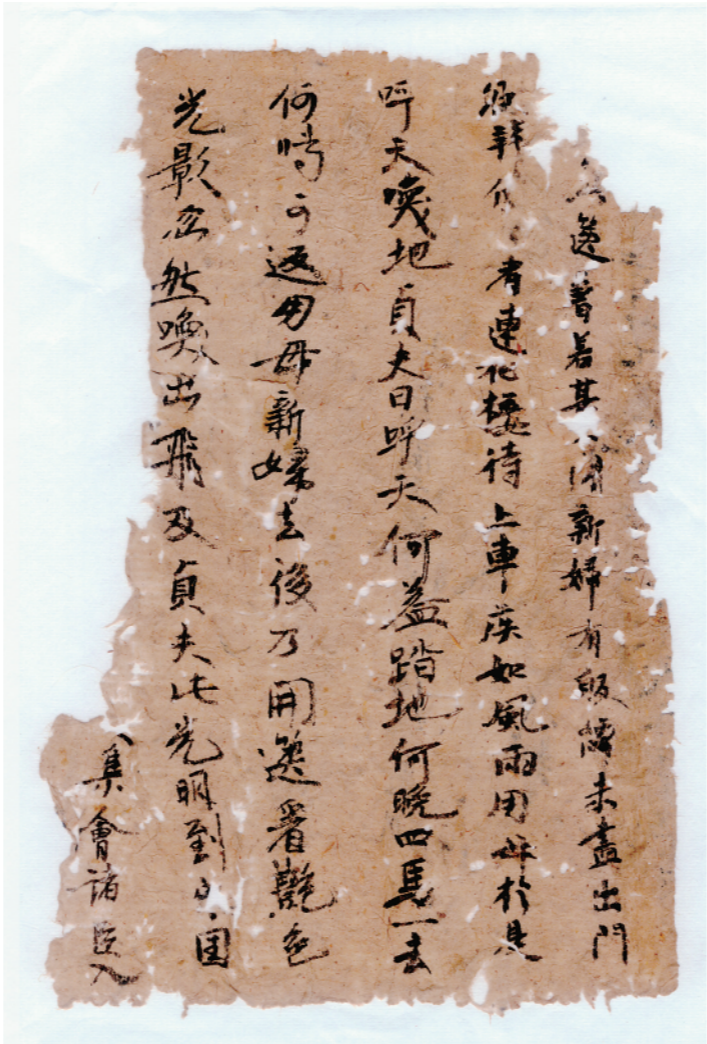 著若其開新婦有皈語未盡出門
者連把接待上車疾如風雨用母於是
呼天喚地貞夫曰呼天何益踏地何晚四馬一去
何時可返用母新婦去後乃開篋看艷色
光影忽然喚出飛及貞夫此光明到國
集會諸臣入